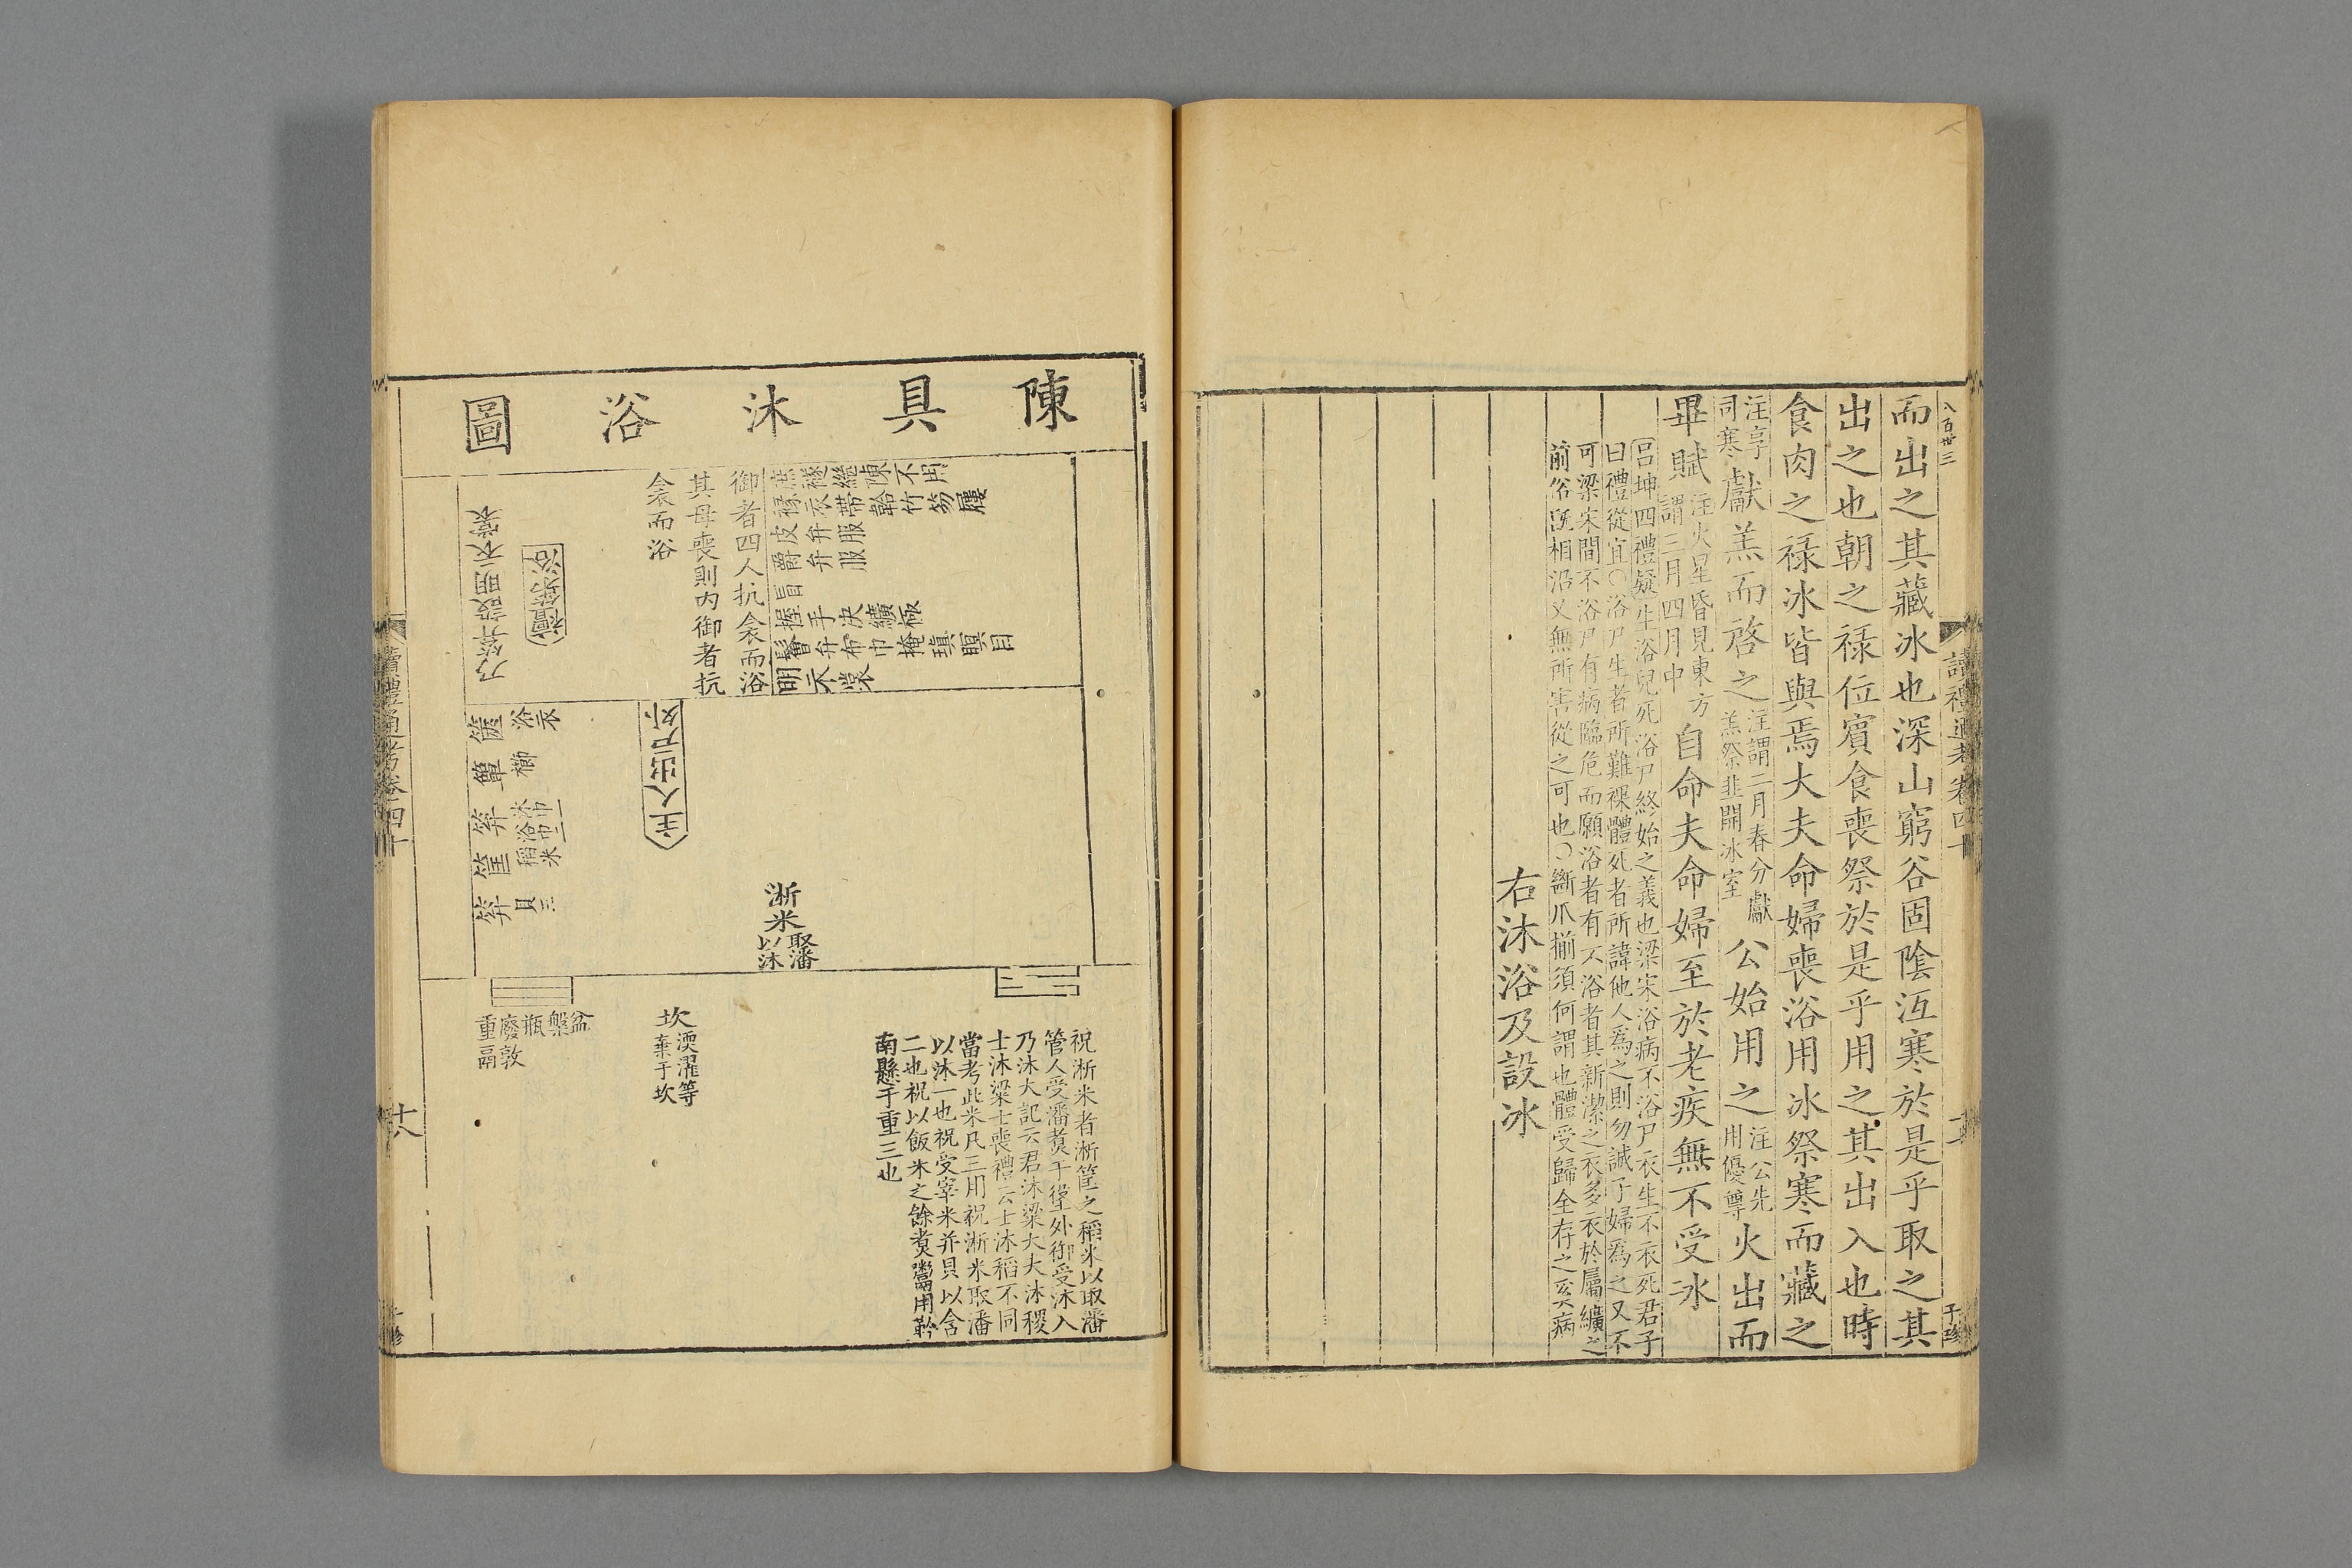 八百廿三
讀禮通考卷四十
于珍
而出之其藏冰也深山窮谷固陰沍寒於是乎取之其
出之也朝之祿位賓食喪祭於是乎用之其出入也時
食肉之祿冰皆與焉大夫命婦喪浴用冰祭寒而藏之
注享司寒獻羔而啓之注謂二月春分獻羔祭韭開冰室公始用之注公先用優尊火出而
畢賦注火星昏見東方謂三月四月中自命夫命婦至於老疾無不受冰
呂坤四禮疑生浴兒死浴尸終始之義也梁宋浴病不浴尸衣生不衣死君子
曰禮從宜○浴尸生者所難裸體死者所諱他人爲之則勿誠子婦爲之又不
可梁宋間不浴尸有病臨危而願浴者有不浴者其新潔之衣多衣於屬纊之
前俗旣相沿又無所害從之可也○斷爪揃須何謂也體受歸全存之亥病
右沐浴及設冰
陳具沐浴圖
庶襚繼陳不用
祿衣帶韐竹笏屨
爵弁服皮弁服
冒
握手決纊極
鬠弁布巾掩瑱瞑目
明衣裳
御者四人抗衾而浴
其母喪則內御者抗
衾而浴
襢笫浴
乃笲設明衣裳
主人出户外
篋浴衣
簞櫛
笲沐巾一浴巾二
筐稻米
笲貝三
淅米取潘以沐
祝淅米者淅筐之稻米以取潘
管人受潘煑于垼外御受沐入
乃沐大記云君沐粱大夫沐稷
士沐粱士喪禮云士沐稻不同
當考此米凡三用祝淅米取潘
以沐一也祝受宰米并貝以含
二也祝以飯米之餘煑鬻用靲
南懸于重三也
坎渜濯等棄于坎
盆
槃
瓶
廢敦
重鬲
讀禮通考卷四十
十八